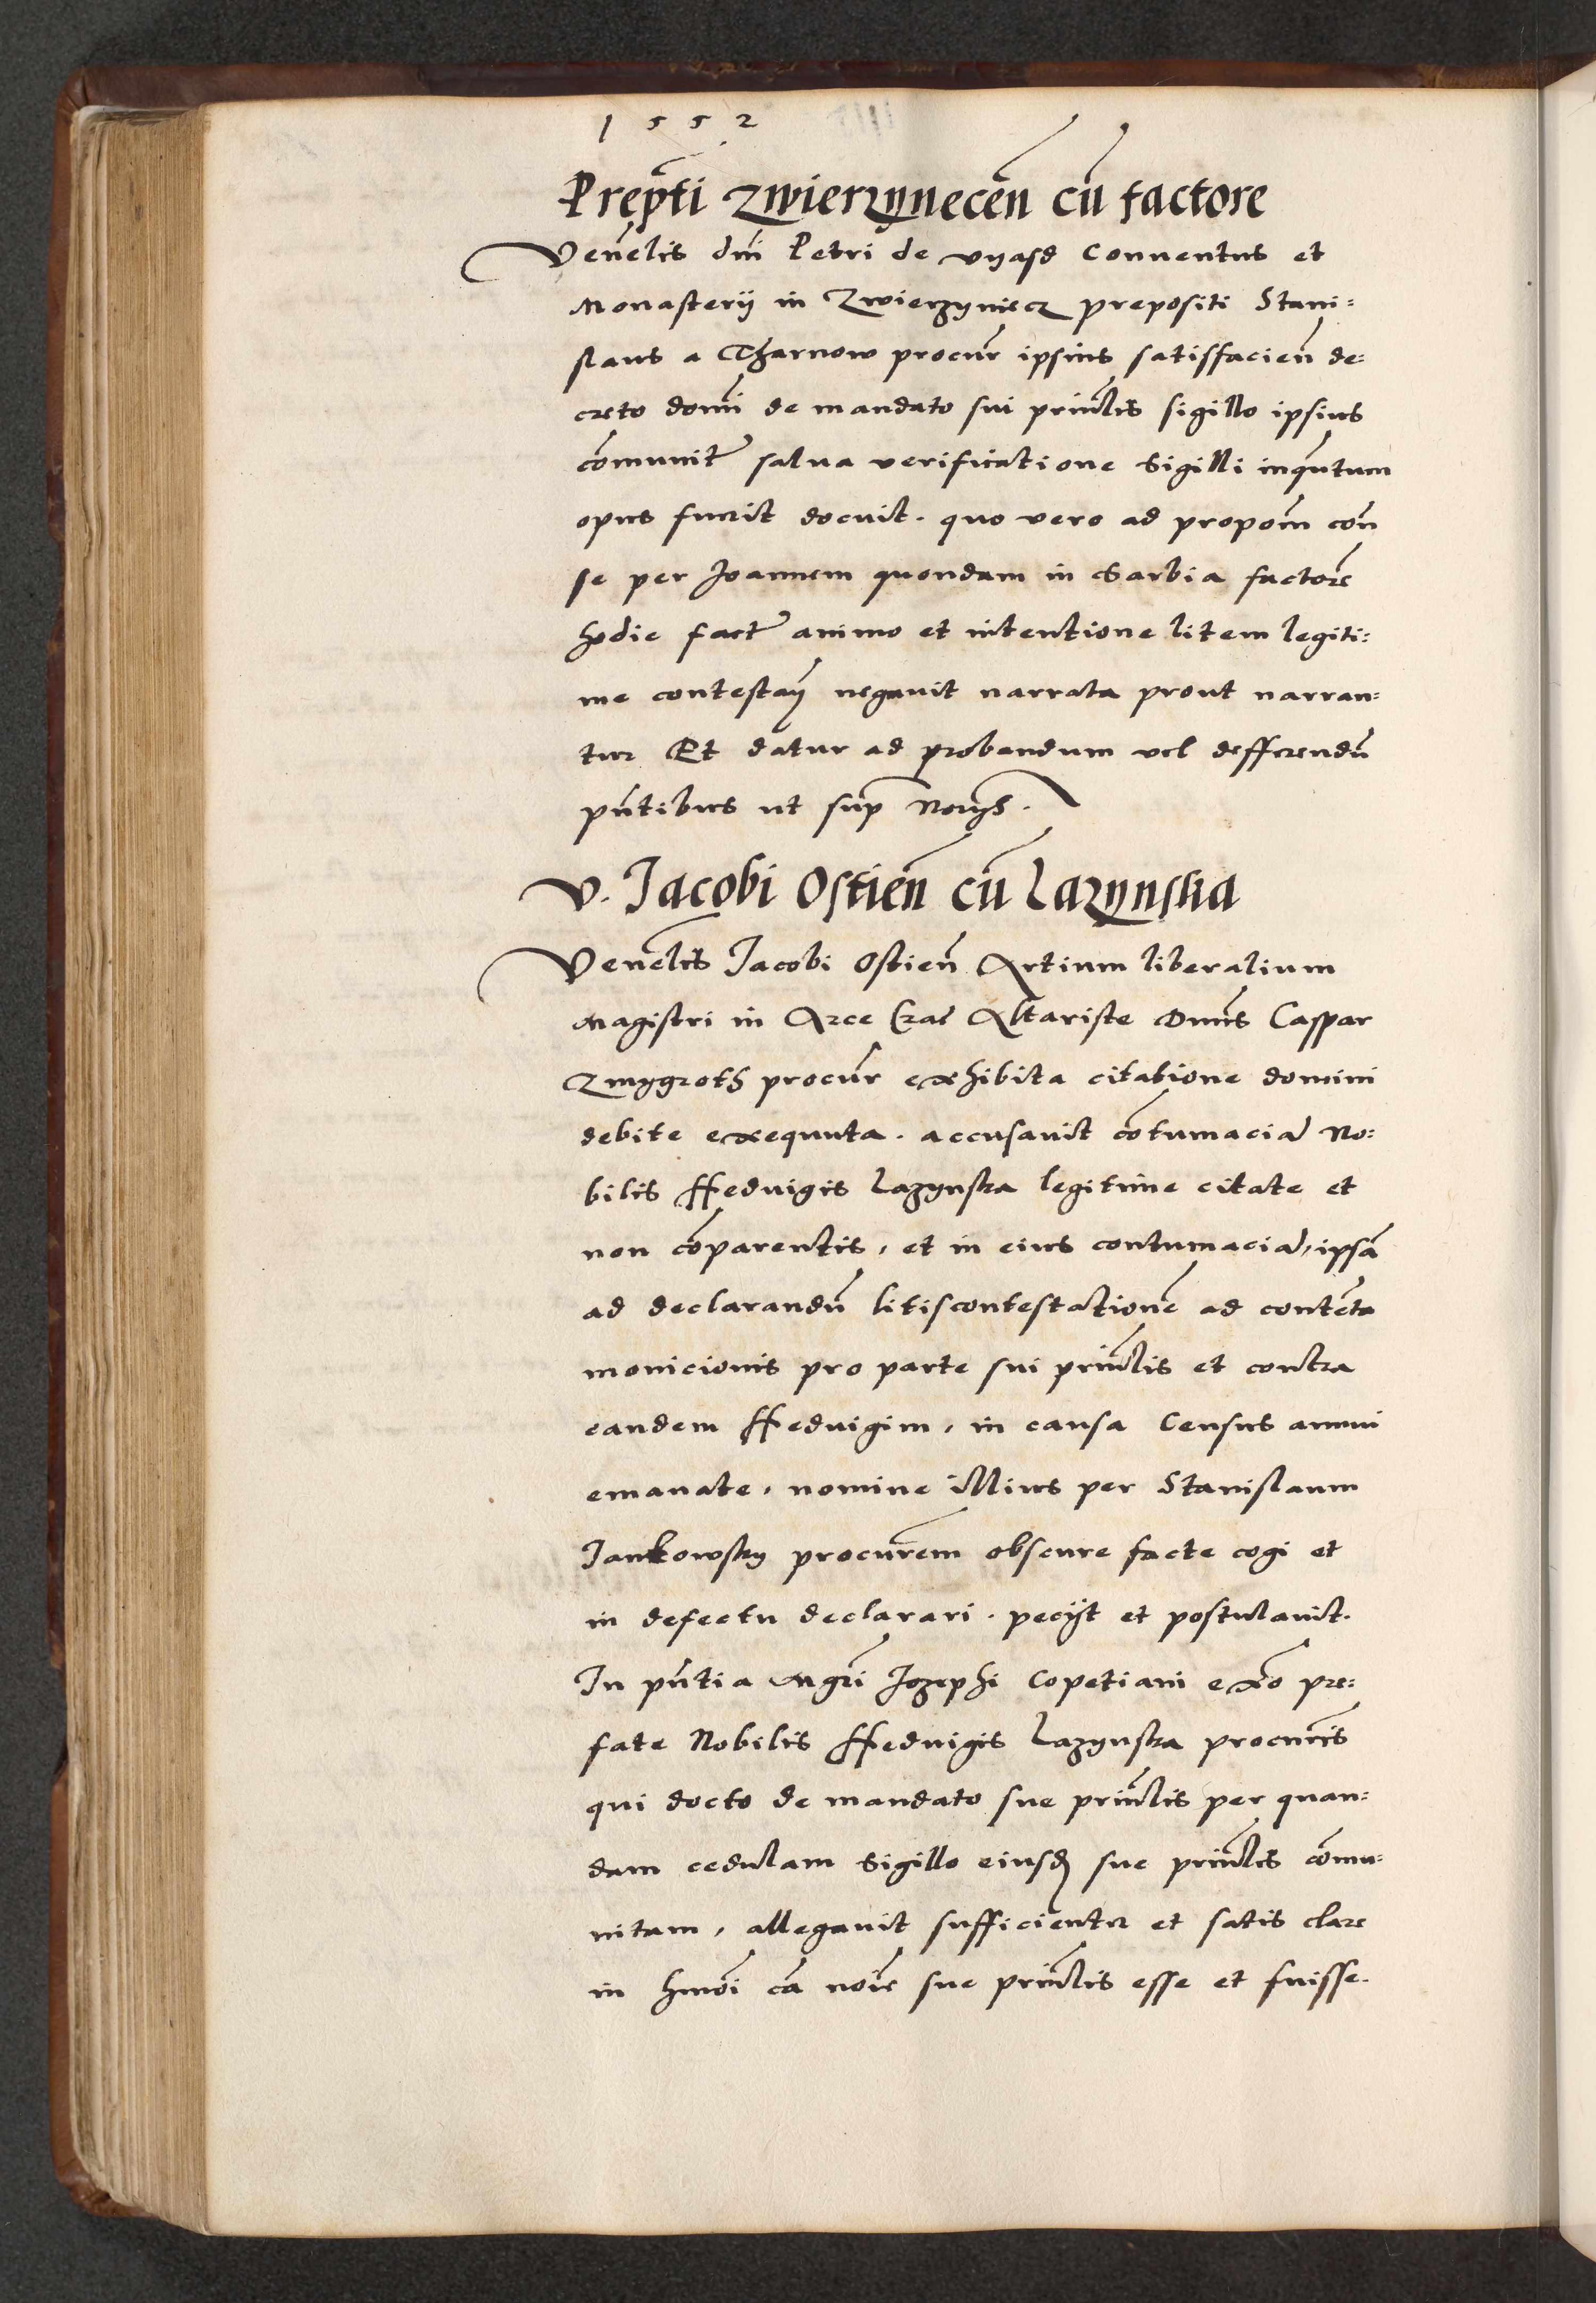 1552
Prep̄ti Zwierzynecēn cū factore
Veneƚlis dm̄i Petri de vyasd Conuentus et
Monasterij in Zwierzyniecz prepositi Stani:
slaus a Tharnow procur̄ ipsius satisfacien̄ de:
creto domī de mandato sui prin̄lis sigillo ipsius
cōmunit̄ salua verificatione sigilli inq̄ntum
opus fuerit docuit. quo vero ad propoīm con̄
se per Joannem quondam in Sarbia factorē
hodie fact̄ animo et intentione litem legiti:
me contestan̄ negauit narrata prout narran:
tur Et datur ad probandum vel defferendū
pn̄tibus ut sup̄ Norijs.
V. Jacobi Ostien̄ cū Lazynska
Veneƚlis Jacobi Ostien̄ Artium liberalium
Magistri in Arce Crac̄ Altariste Dnn̄s Caspar
Zmygroth procur̄ exhibita citatione domini
debite exequuta. accusauit cōtumaciā No:
bilis Heduigis Lazynska legitime citate et
non cōparentis, et in eius contumaciā, ipsā
ad declarandū litiscontestationē ad contēta
monicionis pro parte sui prin̄lis et contra
eandem Heduigim, in causa Census annui
emanate, nomine illius per Stanislaum
Jankowsky procurēm obscure facte cogi et
in defectu declarari. pecijt et postulauit.
In pn̄tia Mgr̄i Jozephi Copetiani ex̄o pre:
fate Nobilis Heduigis Lazynska procur̄is
qui docto de mandato sue prin̄lis per quan:
dam cedulam sigillo eiusd̄ sue prin̄lis cōmu:
nitam, allegauit sufficienter et satis clare
in hmōi cā noīe sue prin̄lis esse et fuisse.